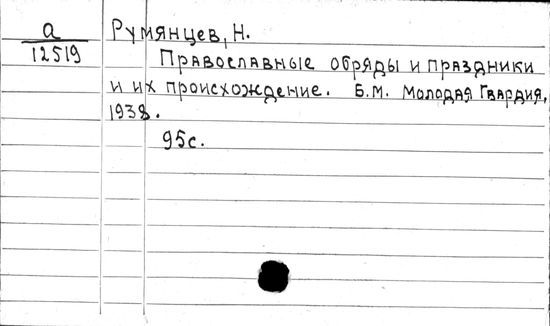 а
12519
Румянцев, Н.
Православные обряды и праздники
и их происхождение. Б.М. Молодая Гвардия,
1938.
95с.